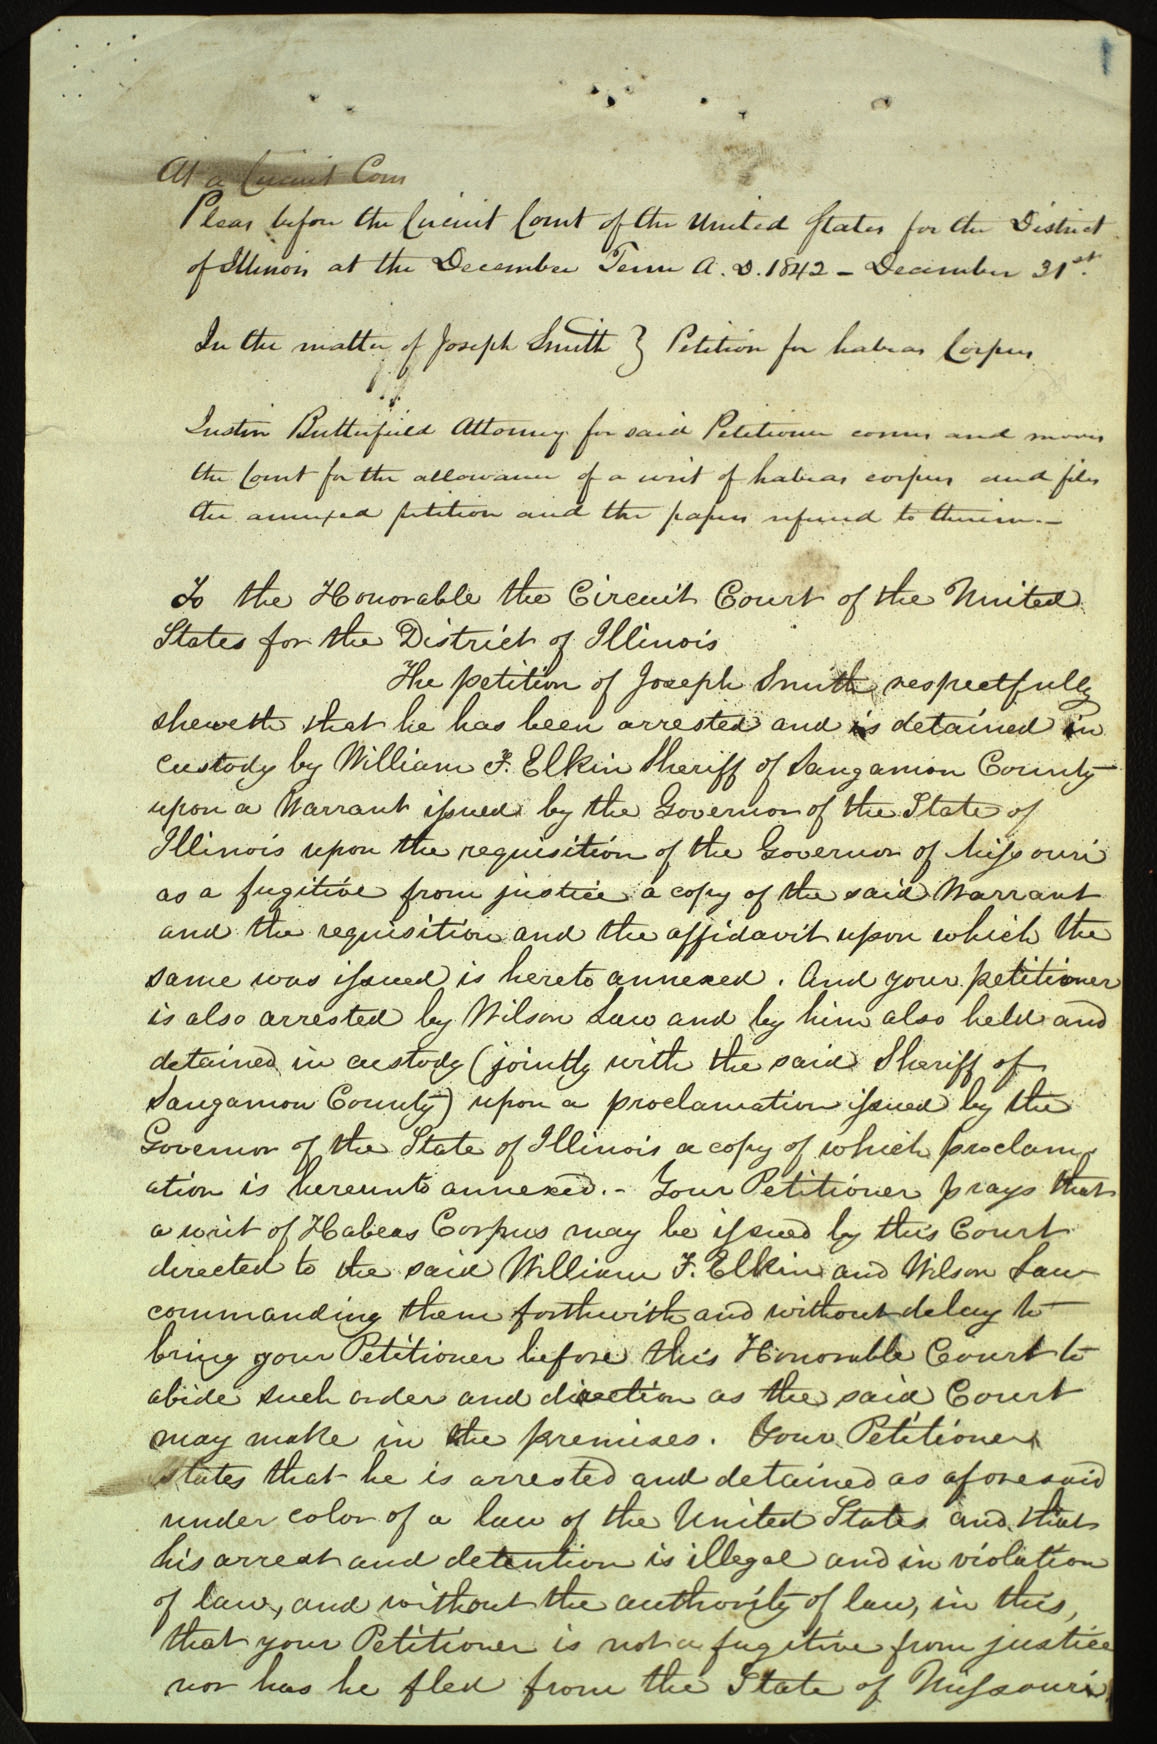 At a Circuit Cour
Pleas before the Circuit Court of the United States for the District
of Illinois at the December Term A. D. 1842 – December 31st.
In the matter of Joseph Smith } Petition for habeas Corpus
Justin Butterfield Attorney for said Petitioner comes and moves
the Court for the allowance of a writ of habeas corpus and files
the annexed petition and the papers referred to therein.–
To the Honorable the Circuit Court of the United
States for the District of Illinois
The petition of Joseph Smith respectfully
sheweth that he has been arrested and is detained in
custody by William F. Elkin Sheriff of Sangamon County
upon a Warrant issued by the Governor of the State of
Illinois upon the requisition of the Governor of Missouri
as a fugitive from justice a copy of the said Warrant
and the requisition and the affidavit upon which the
same was issued is hereto annexed. And your petitioner
is also arrested by Wilson Law and by him also held and
detained in custody (jointly with the said Sheriff of
Sangamon County) upon a proclamation issued by the
Governor of the State of Illinois a copy of which proclam
ation is hereunto annexed.– Your Petitioner prays that
a writ of Habeas Corpus may be issued by this Court
directed to the said William F. Elkin and Wilson Law
commanding them forthwith and without delay to
bring your Petitioner before this Honorable Court to
abide such order and direction as the said Court
may make in the premises. Your Petitioner
states that he is arrested and detained as aforesaid
under color of a law of the United States and that
his arrest and detention is illegal and in violation
of law, and without the authority of law, in this,
that your Petitioner is not a fugitive from justice
nor has he fled from the State of Missouri